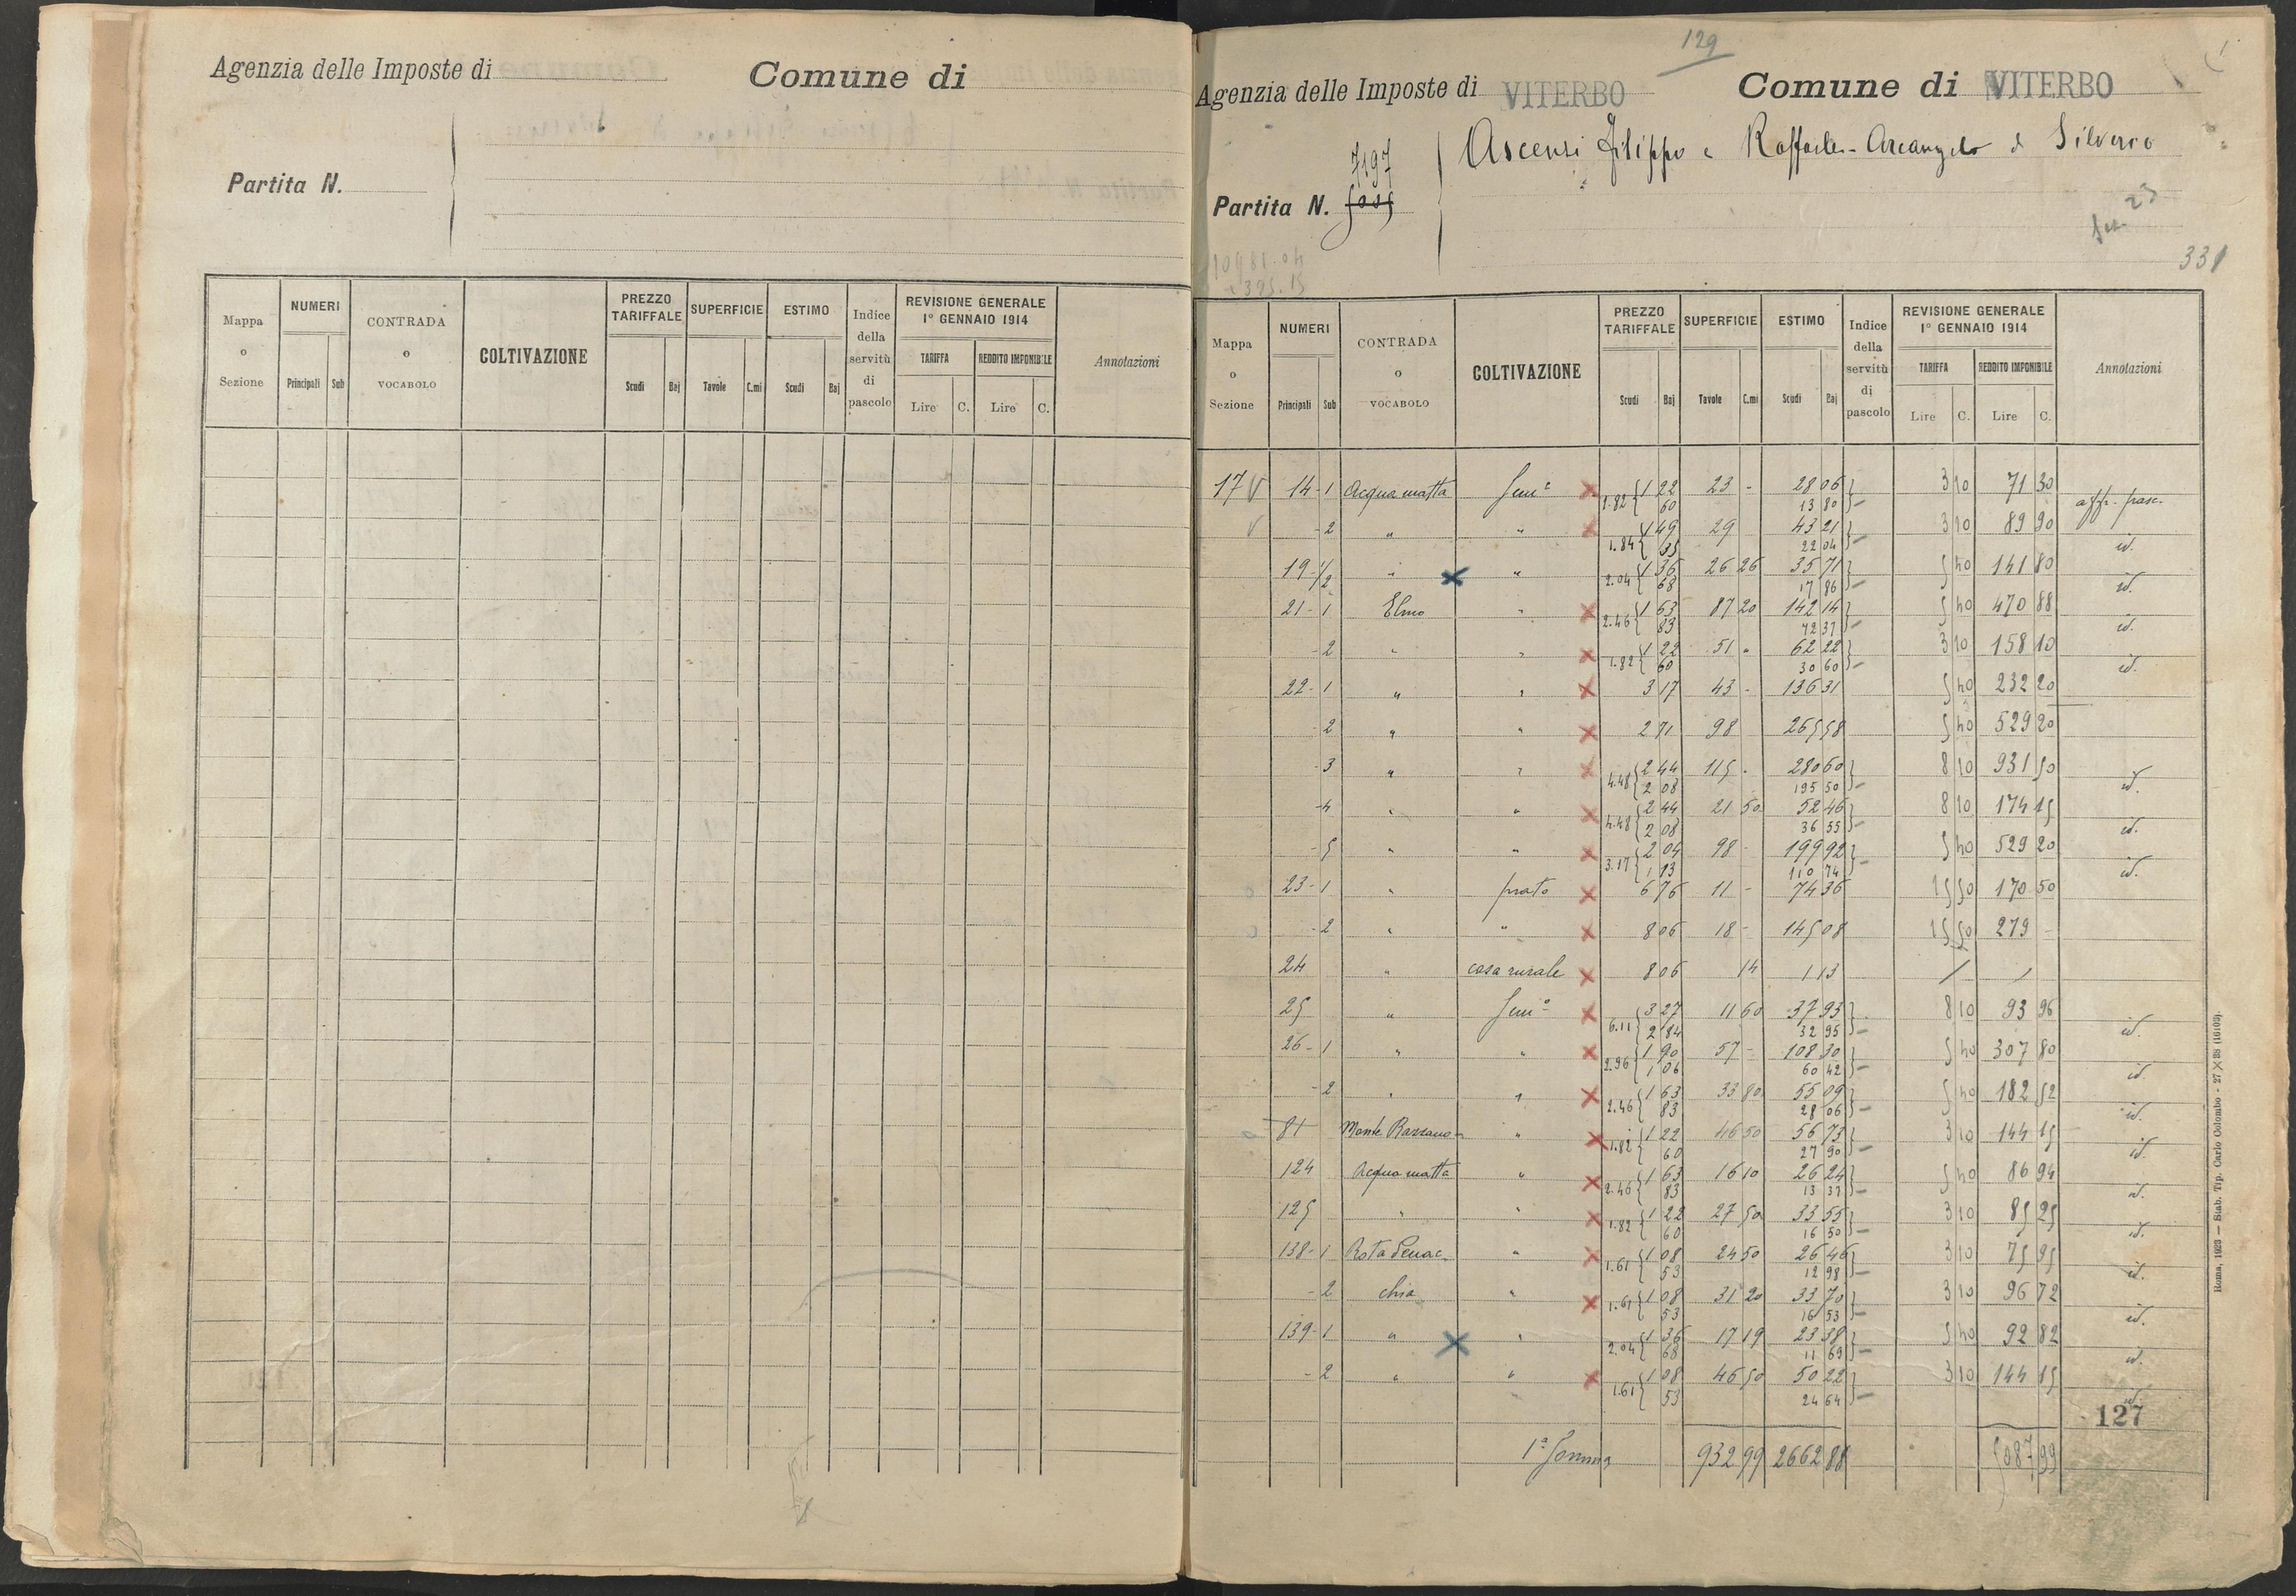 Agenzia delle Imposte di
Comune di
Partita N.
Mappa o Sezione
NUMERI
Principali Sub
CONTRADA o VOCABOLO
COLTIVAZIONE
PREZZO TARIFFALE
Scudi Baj
SUPERFICIE
Tavole C.mi
ESTIMO
Scudi Baj
Indice della servitù di pascolo
REVISIONE GENERALE 1º GENNAIO 1914
TARIFFA
Lire C.
REDDITO IMPONIBILE
Lire C.
Annotazioni
129
Agenzia delle Imposte di VITERBO
Comune di VITERBO
7197
Partita N.
Ascensi Filippo e Raffaele-Arcangelo di Silverio
331
10981.04
Mappa o Sezione
NUMERI
Principali Sub
CONTRADA o VOCABOLO
COLTIVAZIONE
PREZZO TARIFFALE
Scudi Baj
SUPERFICIE
Tavole C.mi
ESTIMO
Scudi Baj
Indice della servitù di pascolo
REVISIONE GENERALE 1º GENNAIO 1914
TARIFFA
Lire C.
REDDITO IMPONIBILE
Lire C.
Annotazioni
17 V 14-1 Acqua matta Semº 1.82 { 1 22 23 - 28 06 } 3 10 71 30 aff. pasc.
60 13 80
V -2 " " 1.84 { 1 49 29 43 21 } 3 10 89 90 id.
35 22 04
19-1/2 " " 2.04 { 1 36 26 26 35 71 } 5 40 141 80 id.
68 17 86
21-1 Elmo " 2.46 { 1 63 87 20 142 14 } 5 40 470 88 id.
83 72 37
-2 " " 1.82 { 1 22 51 " 62 22 } 3 10 158 10 id.
60 30 60
22-1 " " 3 17 43 - 136 31 5 40 232 20
-2 " " 2 71 98 265 58 5 40 529 20
-3 " " 4.48 { 2 44 115 - 280 60 } 8 10 931 50 id.
2 08 195 50
-4 " " 4.48 { 2 44 21 50 52 46 } 8 10 174 15 id.
2 08 36 55
-5 " " 3.17 { 2 04 98 - 199 92 } 5 40 529 20 id.
1 13 110 74
23-1 " prato 6 76 11 - 74 36 15 50 170 50
-2 " " 8 06 18 - 145 08 15 50 279 -
24 " casa rurale 8 06 14 1 13 / /
25 " Semº 6.11 { 3 27 11 60 37 93 } 8 10 93 96 id.
2 84 32 95
26-1 " " 2.96 { 1 90 57 - 108 30 } 5 40 307 80 id.
1 06 60 42
-2 " " 2.46 { 1 63 33 80 55 09 } 5 40 182 52 id.
83 28 06
81 Monte Razzano " 1.82 { 1 22 46 50 56 73 } 3 10 144 15 id.
60 27 90
124 Acqua matta " 2.46 { 1 63 16 10 26 24 } 5 40 86 94 id.
83 13 37
125 " " 1.82 { 1 22 27 50 33 55 } 3 10 85 25 id.
60 16 50
138-1 Rota Penac- " 1.61 { 1 08 24 50 26 46 } 3 10 75 95 id.
53 12 98
-2 chia " 1.61 { 1 08 31 20 33 70 } 3 10 96 72 id.
53 16 53
139-1 " " 2.04 { 1 36 17 19 23 38 } 5 40 92 82 id.
68 11 69
-2 " " 1.61 { 1 08 46 50 50 22 } 3 10 144 15 id.
53 24 64
127
1ª Somma 932 99 2662 88 5087 99
Roma, 1923 — Stab. Tip. Carlo Colombo - 27 X 38 (16103).